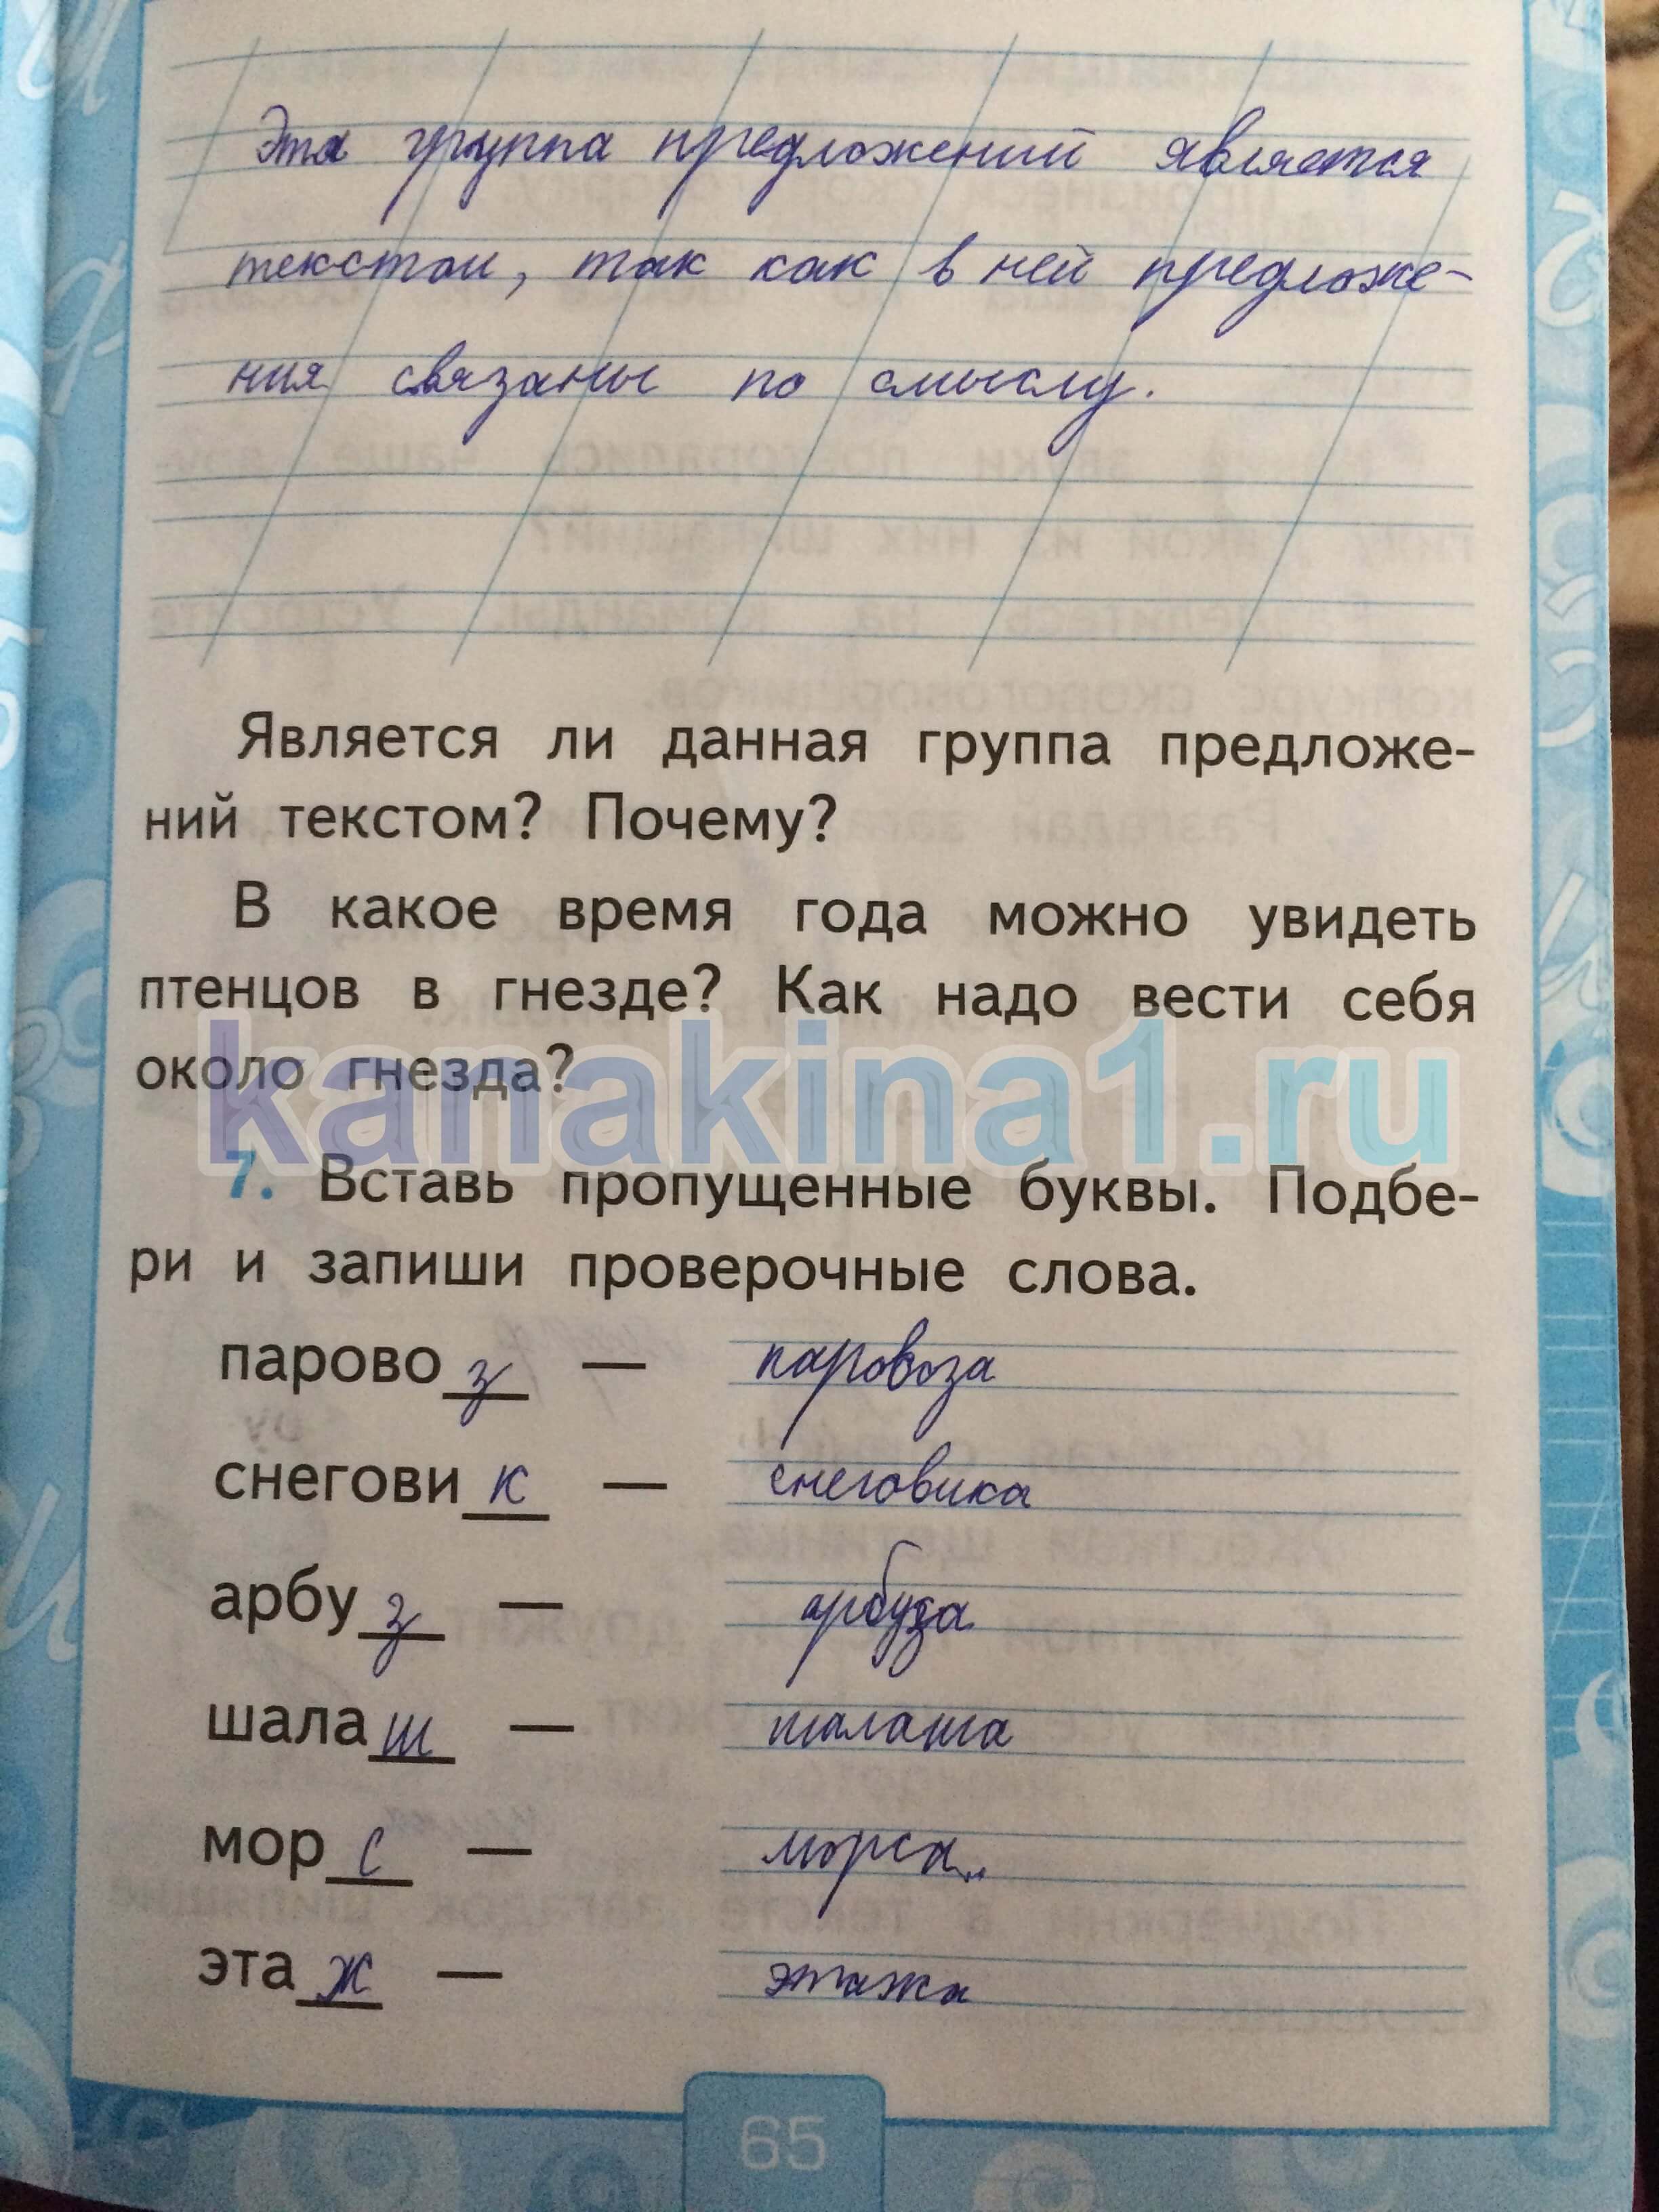 Эта группа предложений является
текстом, так как в ней предложе-
ния связаны по смыслу.
Является ли данная группа предложе-
ний текстом? Почему?
В какое время года можно увидеть
птенцов в гнезде? Как надо вести себя
около гнезда?
kanakina1.ru
7. Вставь пропущенные буквы. Подбе-
ри и запиши проверочные слова.
паровоз — паровоза
снеговик — снеговика
арбуз — арбуза
шалаш — шалаша
морс — морса
этаж — этажа
65